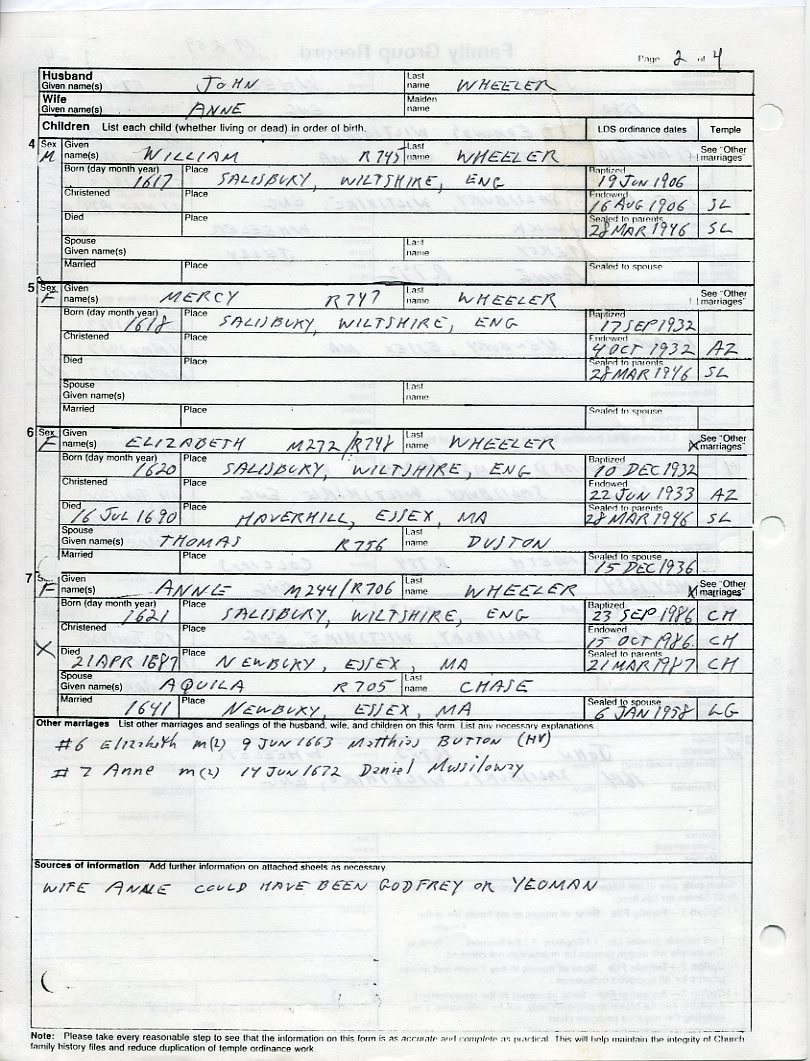 Page 2 of 4
Husband Given name(s) JOHN Last name WHEELER
Wife Given name(s) ANNE Maiden name
Children List each child (whether living or dead) in order of birth. LDS ordinance dates Temple
4 Sex M Given name(s) WILLIAM R745 Last name WHEELER See "Other marriages"
Born (day month year) 1617 Place SALISBURY, WILTSHIRE, ENG Baptized 19 JUN 1906
Christened Place Endowed 16 AUG 1906 SL
Died Place Sealed to parents 28 MAR 1946 SL
Spouse Given name(s) Last name
Married Place Sealed to spouse
5 Sex F Given name(s) MERCY R747 Last name WHEELER See "Other marriages"
Born (day month year) 1618 Place SALISBURY, WILTSHIRE, ENG Baptized 17 SEP 1932
Christened Place Endowed 4 OCT 1932 AZ
Died Place Sealed to parents 28 MAR 1946 SL
Spouse Given name(s) Last name
Married Place Sealed to spouse
6 Sex F Given name(s) ELIZABETH M272/R748 Last name WHEELER X See "Other marriages"
Born (day month year) 1620 Place SALISBURY, WILTSHIRE, ENG Baptized 10 DEC 1932
Christened Place Endowed 22 JUN 1933 AZ
Died 16 JUL 1690 Place HAVERHILL, ESSEX, MA Sealed to parents 28 MAR 1946 SL
Spouse Given name(s) THOMAS R756 Last name DUSTON
Married Place Sealed to spouse 15 DEC 1936
7 F Given name(s) ANNE M244/R706 Last name WHEELER X See "Other marriages"
Born (day month year) 1621 Place SALISBURY, WILTSHIRE, ENG Baptized 23 SEP 1986 CH
X Christened Place Endowed 15 OCT 1986 CH
Died 21 APR 1687 Place NEWBURY, ESSEX, MA Sealed to parents 21 MAR 1987 CH
Spouse Given name(s) AQUILA R705 Last name CHASE
Married 1641 Place NEWBURY, ESSEX, MA Sealed to spouse 6 JAN 1958 LG
Other marriages List other marriages and sealings of the husband, wife, and children on this form. List any necessary explanations
#6 Elizabeth m(2) 9 JUN 1663 Matthias BUTTON (HV)
#7 Anne m(2) 14 JUN 1672 Daniel Mussiloway
Sources of information Add further information on attached sheets as necessary
WIFE ANNE COULD HAVE BEEN GODFREY OR YEOMAN
Note: Please take every reasonable step to see that the information on this form is as accurate and complete as practical. This will help maintain the integrity of Church
family history files and reduce duplication of temple ordinance work.